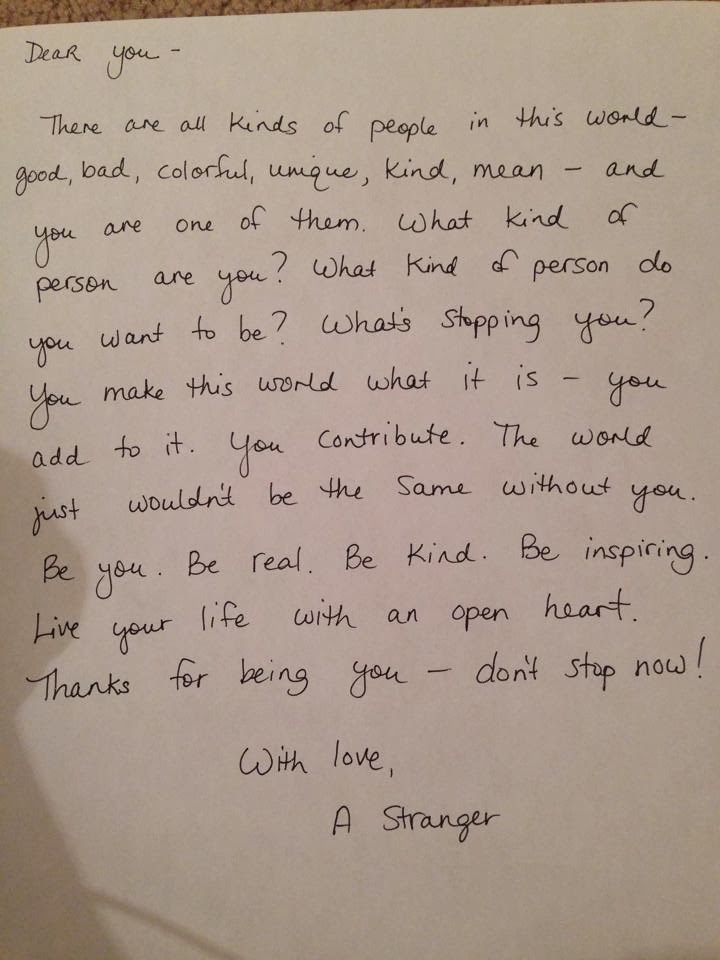 Dear you -
There are all kinds of people in this world -
good, bad, colorful, unique, kind, mean - and
you are one of them. What kind of
person are you? What kind of person do
you want to be? What's stopping you?
You make this world what it is - you
add to it. You contribute. The world
just wouldn't be the same without you.
Be you. Be real. Be kind. Be inspiring.
Live your life with an open heart.
Thanks for being you - don't stop now!
With love,
A Stranger